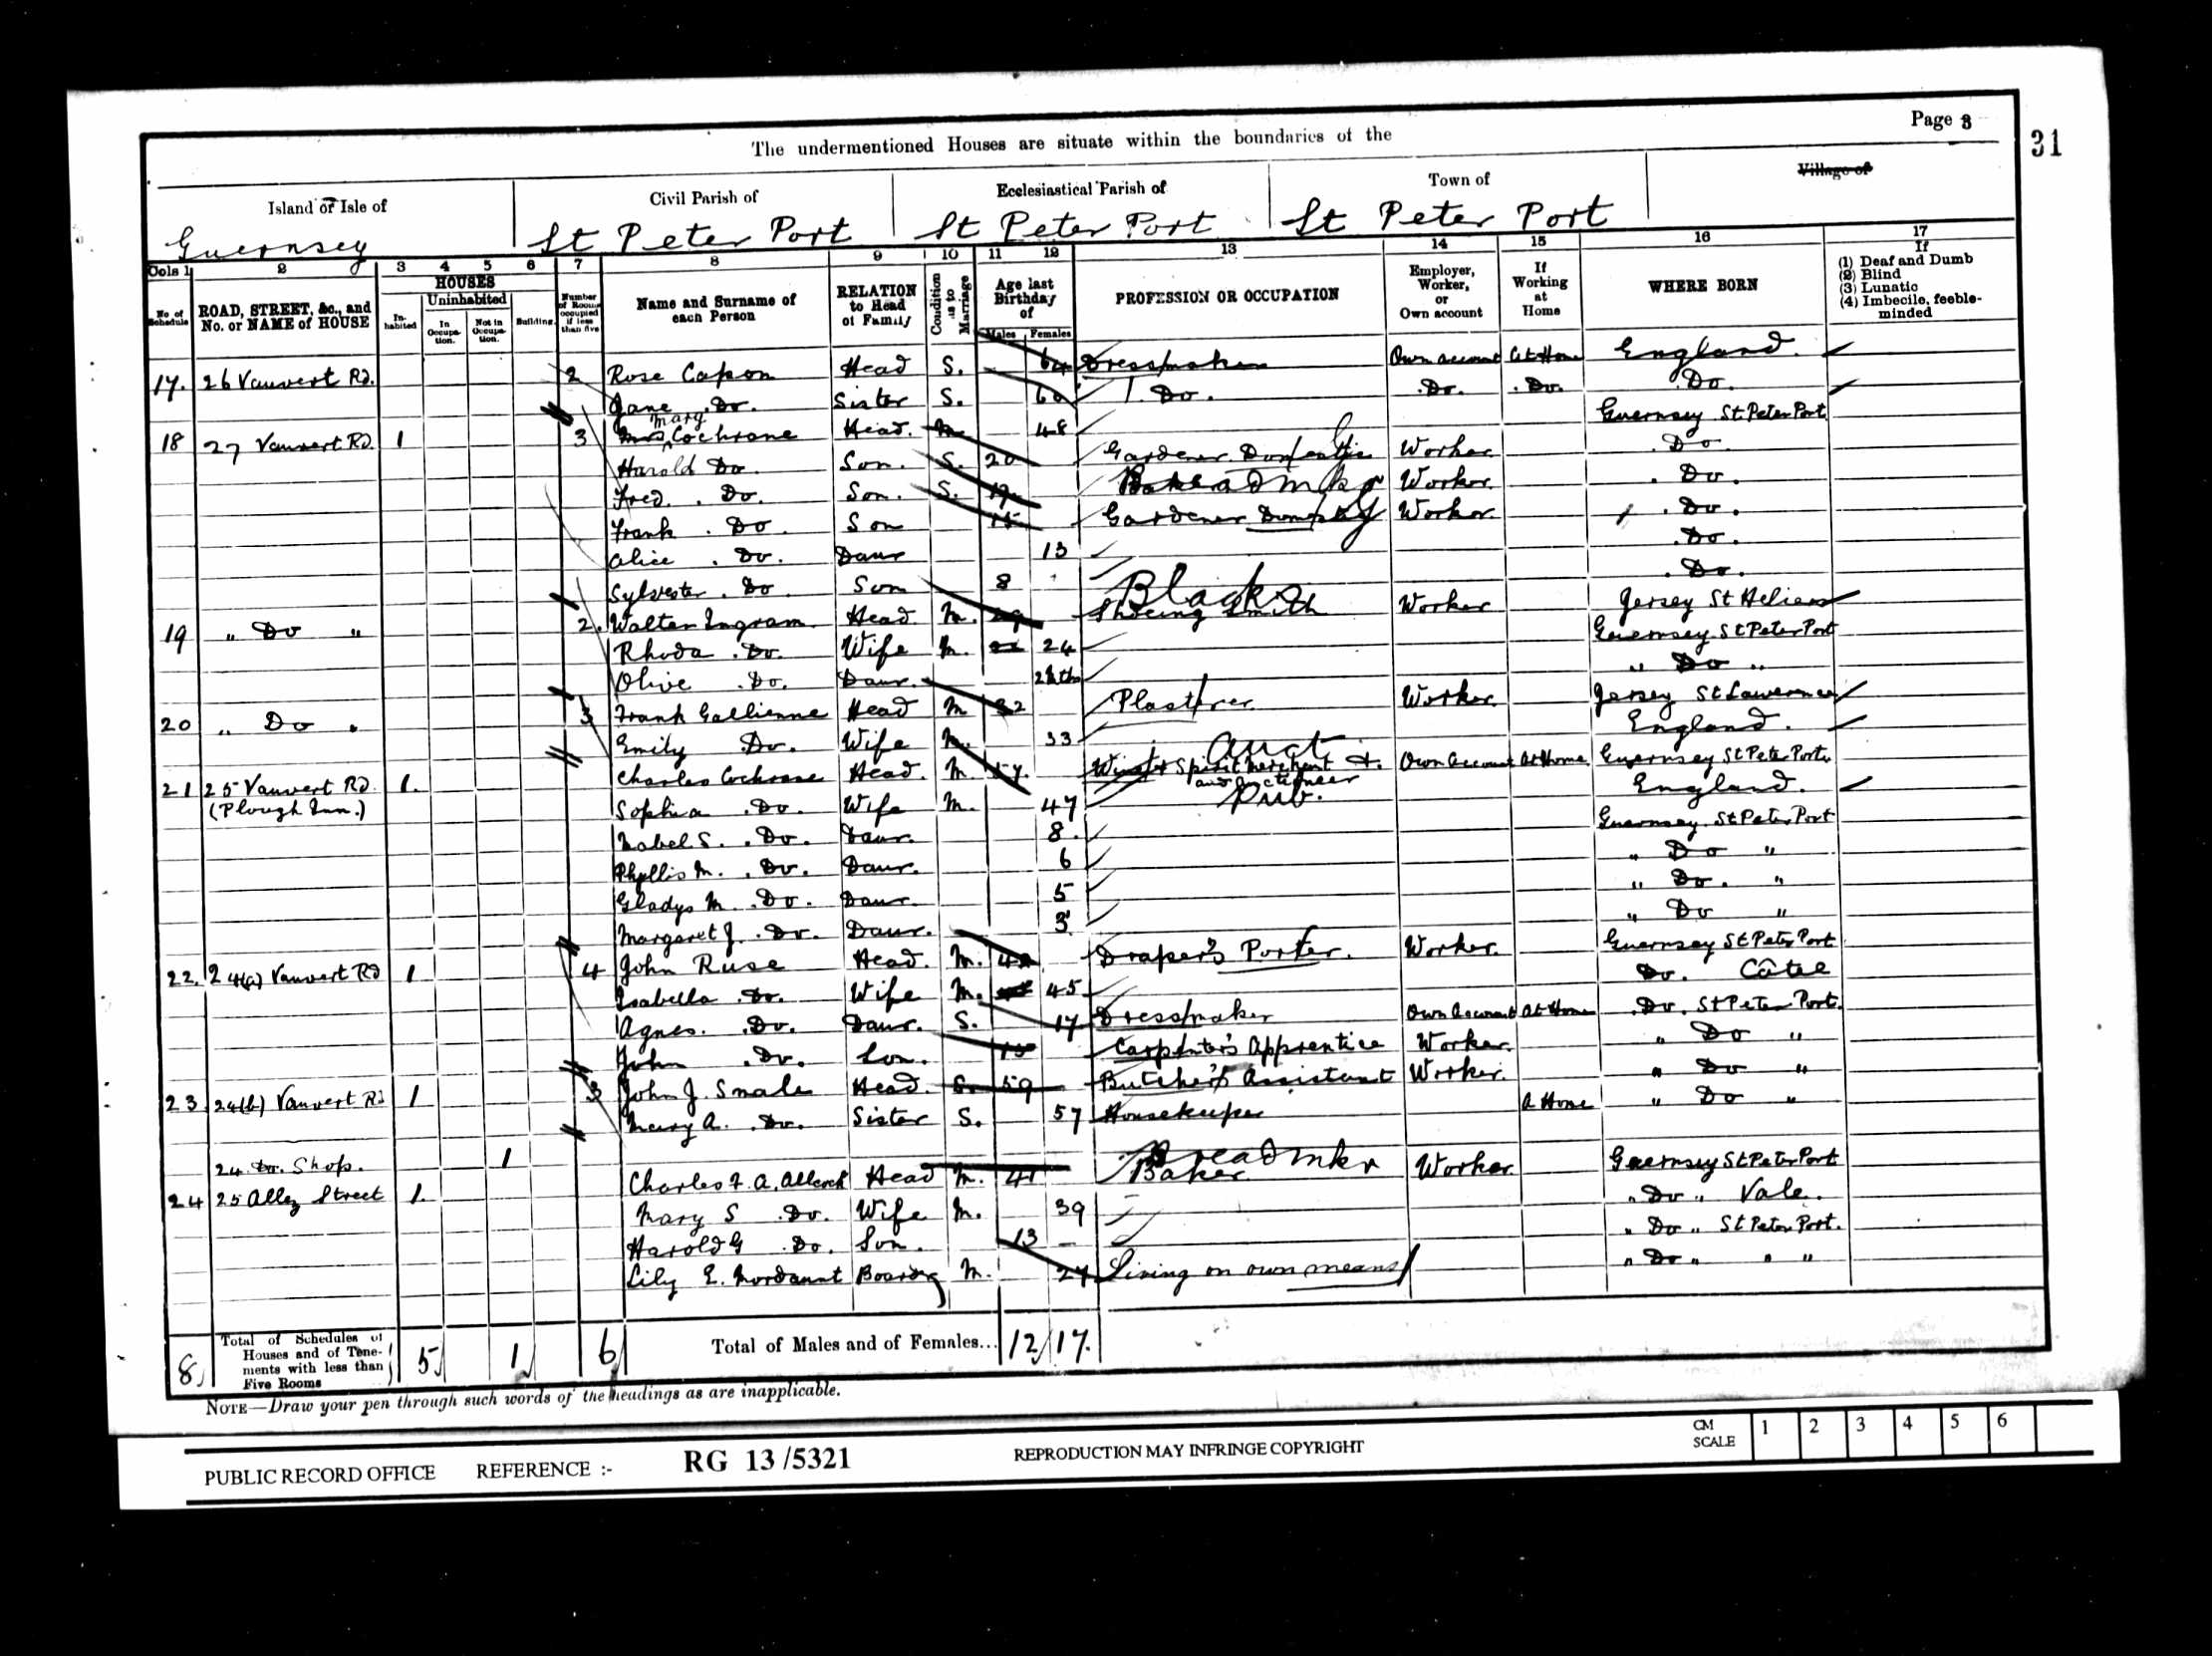 Page 3
31
The undermentioned Houses are situate within the boundaries of the
Island or Isle of
Civil Parish of
Ecclesiastical Parish of
Town of
Village of
Guernsey
St Peter Port
St Peter Port
St Peter Port
Cols 1 2 3 4 5 6 7 8 9 10 11 12 13 14 15 16 17
No. of Schedule
ROAD, STREET, &c., and No. or NAME of HOUSE
HOUSES
In-habited
Uninhabited
In Occupa-tion.
Not in Occupa-tion.
Building.
Number of Rooms occupied if less than five
Name and Surname of each Person
RELATION to Head of Family
Condition as to Marriage
Age last Birthday of
Males Females
PROFESSION OR OCCUPATION
Employer, Worker, or Own account
If Working at Home
WHERE BORN
If
(1) Deaf and Dumb
(2) Blind
(3) Lunatic
(4) Imbecile, feeble-minded
17. 26 Vauvert Rd. 2 Rose Capon Head S. 64 Dressmaker Own account At Home England
Jane Do. Sister S. 60 Do. Do. Do. Do.
18 27 Vauvert Rd. 1 3 Mrs Mary Cochrane Head. M 48 Guernsey St Peter Port
Harold Do. Son. S. 20 Gardener Domestic Worker Do.
Fred. Do. Son. S. 19 Breadmkr Worker Do.
Frank Do. Son 15 Gardener Worker Do.
Alice Do. Daur 13 Do.
Sylvester Do. Son 8 Do.
19 " Do " 2. Walter Ingram Head M. 29 Blacks Shoeing Smith Worker Jersey St Heliers
Rhoda Do. Wife M. 24 Guernsey St Peter Port
Olive Do. Daur. 2 Mths " Do "
20 " Do " 3 Frank Gallienne Head M 32 Plasterer Worker Jersey St Lawrence
Emily Do. Wife M. 33 England.
21 25 Vauvert Rd. (Plough Inn.) 1. Charles Cochrane Head. M. 57. Wine & Spirit Merchant and Auctioneer Auct + Pub. Own account At Home Guernsey St Peter Port
Sophia Do. Wife M. 47 England.
Mabel S. Do. Daur. 8. Guernsey St Peter Port
Phyllis M. Do. Daur. 6 " Do "
Gladys M. Do. Daur. 5 " Do. "
Margaret J. Do. Daur. 3 " Do "
22. 24(a) Vauvert Rd 1 4 John Ruse Head. M. 42 Draper's Porter. Worker. Guernsey St Peter Port
Isabella Do. Wife M. 45 Do. Câtel
Agnes. Do. Daur. S. 17 Dressmaker Own Account At Home Do. St Peter Port.
John Do. Son. 15 Carpenter's Apprentice Worker. " Do "
23 24(b) Vauvert Rd 1 3 John J. Smale Head. S. 59 Butcher's Assistant Worker. " Do "
Mary A. Do. Sister S. 57 Housekeeper A Home " Do "
24 Do. Shop. 1
24 25 Allez Street 1. Charles F. A. Head M. 41 Breadmkr Baker Worker Guernsey St Peter Port
Mary S Do. Wife M. 39 " Do " Vale.
Harold G Do. Son. 13 " Do " St Peter Port.
Lily E. Mordaunt Boarder M. 27 Living on own means " Do " " "
8 Total of Schedules of Houses and of Tene-ments with less than Five Rooms 5 1 6 Total of Males and of Females... 12 17.
NOTE—Draw your pen through such words of the headings as are inapplicable.
PUBLIC RECORD OFFICE REFERENCE :- RG 13 /5321 REPRODUCTION MAY INFRINGE COPYRIGHT
CM SCALE 1 2 3 4 5 6